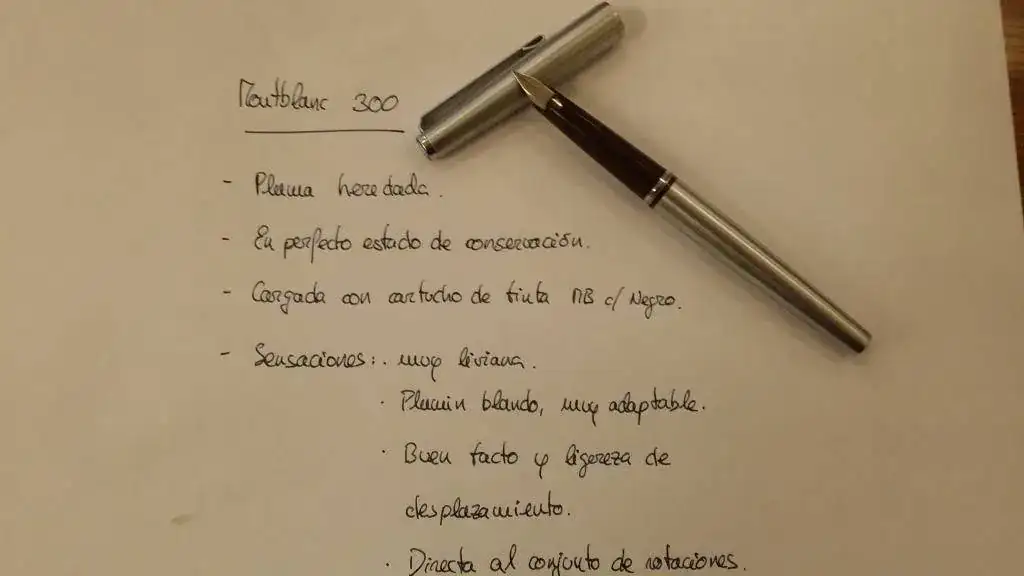 Montblanc 300
- Pluma heredada.
- En perfecto estado de conservación.
- Cargada con cartucho de tinta MB c/ Negro.
- Sensaciones: · muy liviana.
· Plumin blando, muy adaptable.
· Buen tacto y ligereza de
desplazamiento.
· Directa al conjunto de rotaciones.